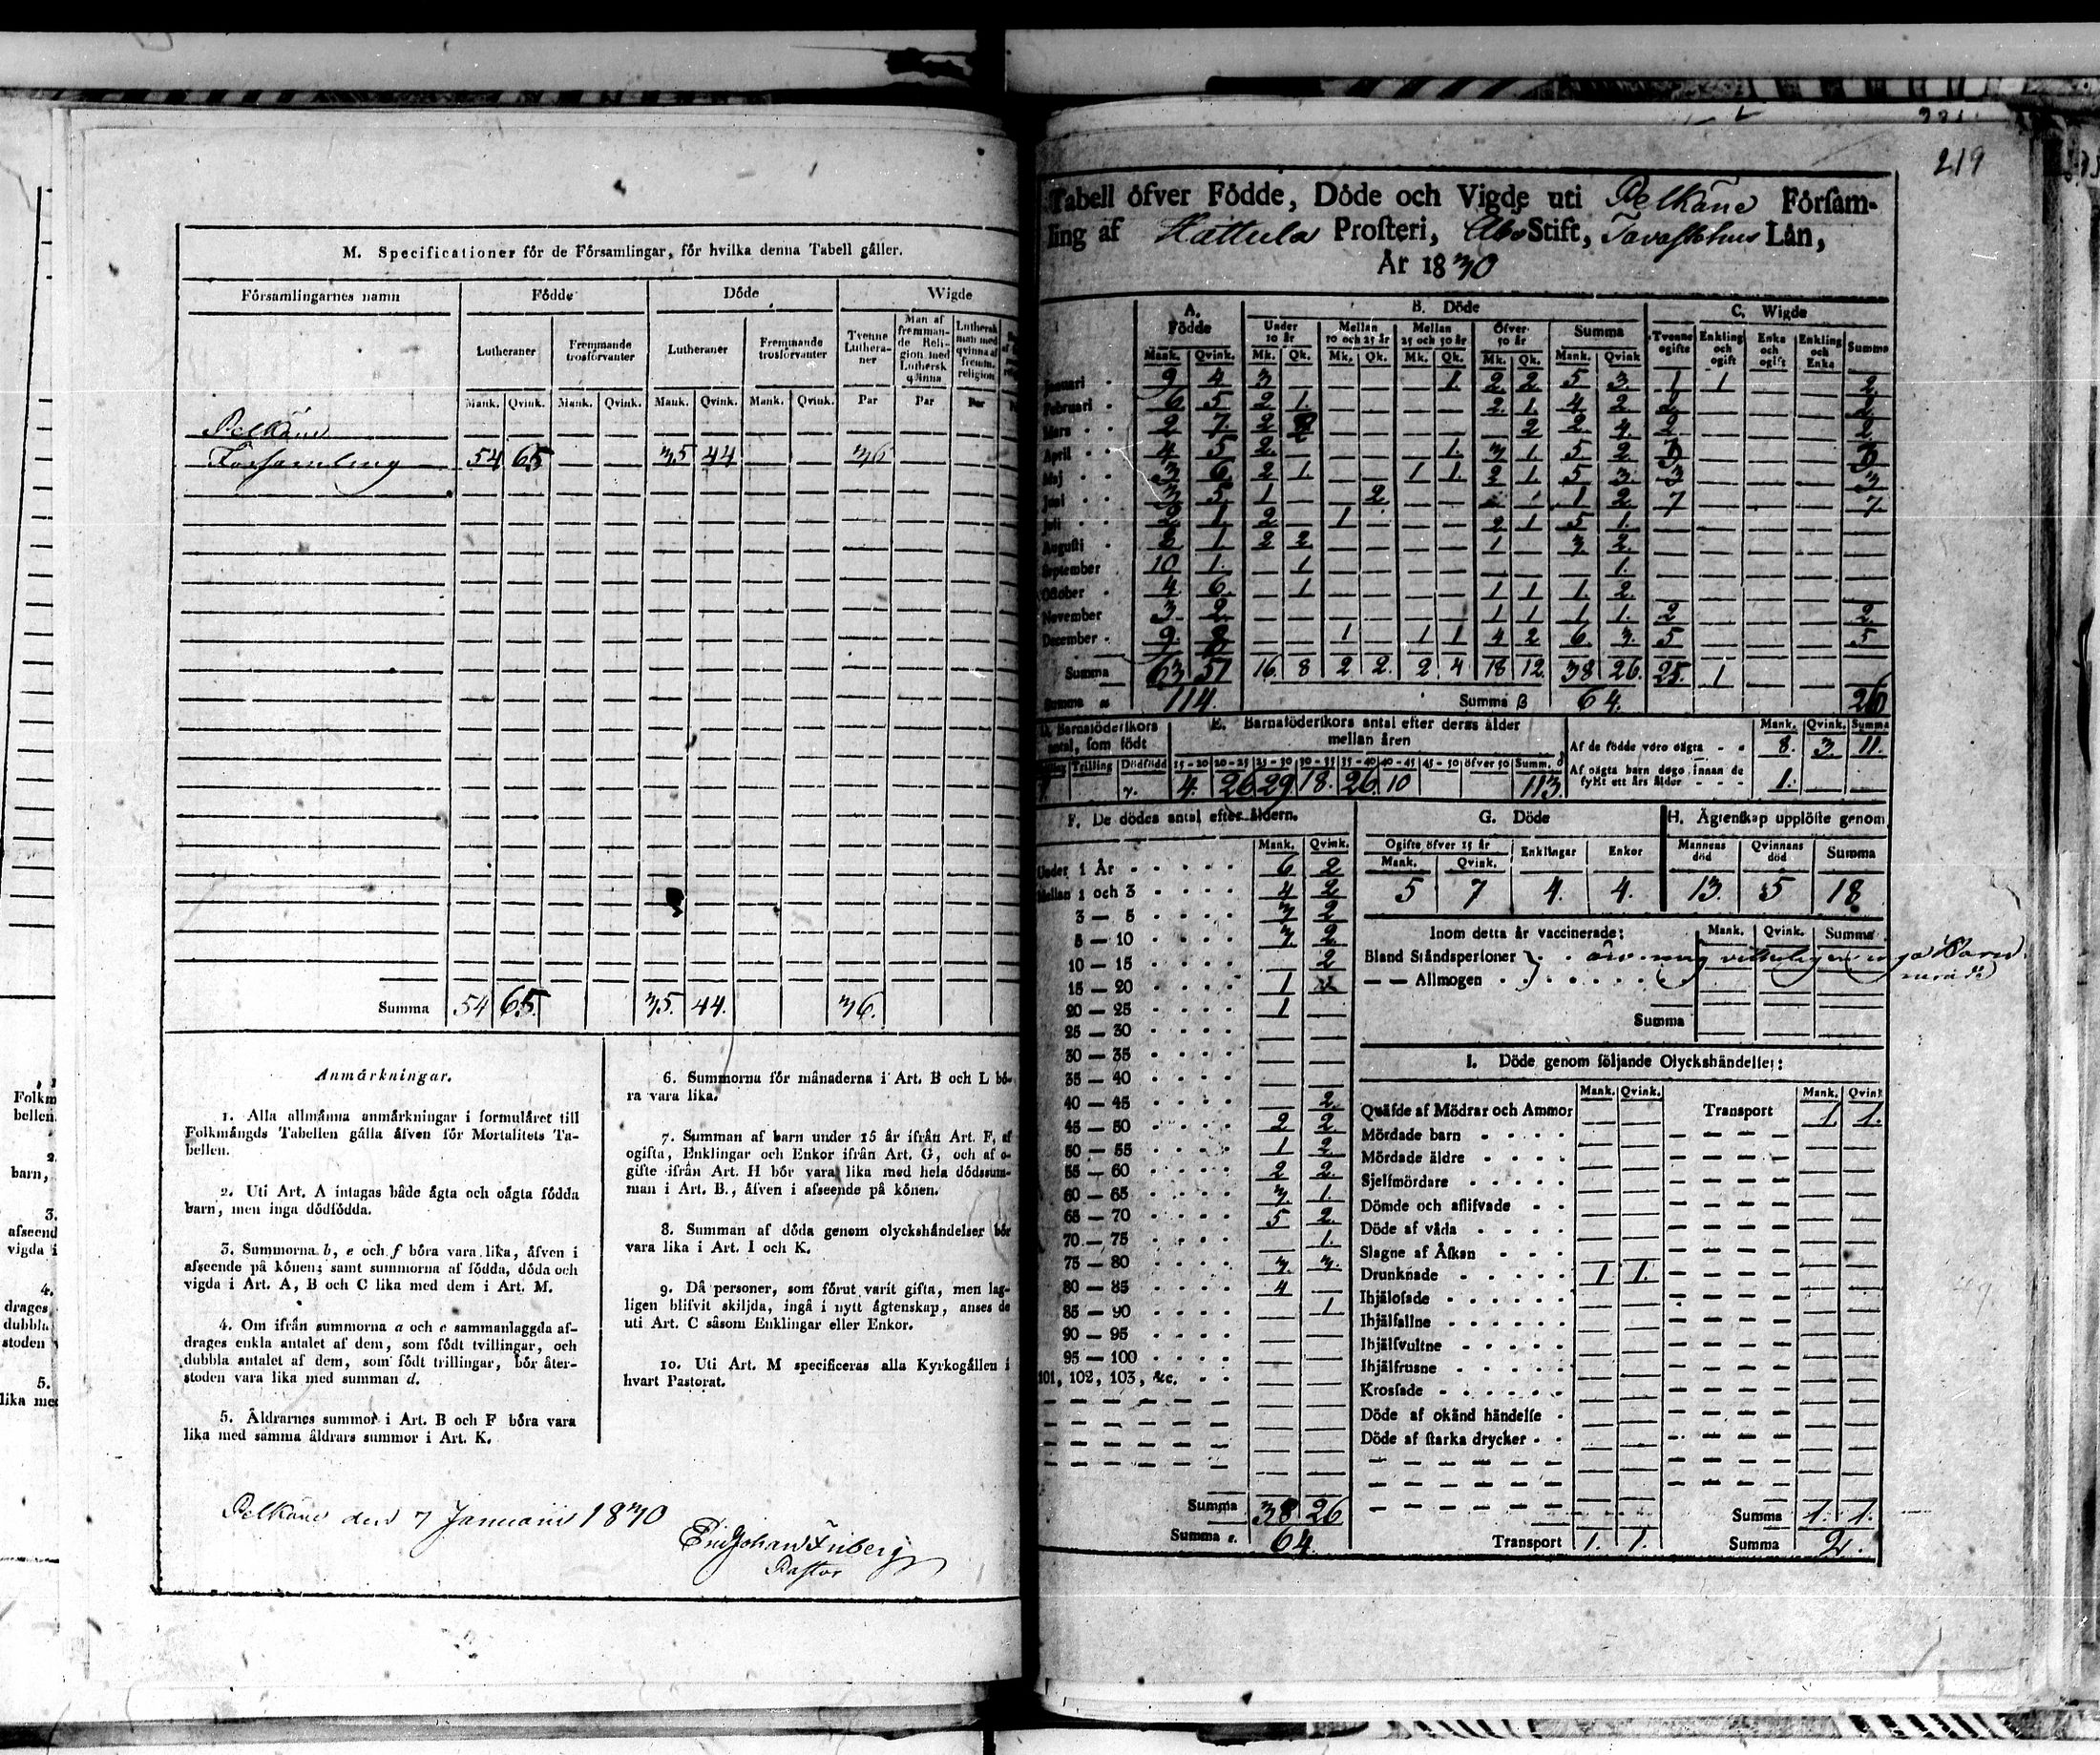 219
M. Specificationer för de Församlingar, för hvilka denna Tabell gäller.
Församlingarnes namn Födde Döde Wigde
Lutheraner Fremmande trosförvanter Lutheraner Fremmande trosförvanter Tvenne Lutheraner Man af fremmande Religion med Luthersk qvinna Luthersk man med qvinna af fremm. religion
Mank. Qvink. Mank. Qvink. Mank. Qvink. Mank. Qvink. Par Par Par
Pelkäne
Församling 54 65 35 44 36
Summa 54 65. 35. 44. 36.
Anmärkningar.
1. Alla allmänna anmärkningar i formuläret till
Folkmängds Tabellen gälla äfven för Mortalitets Ta-
bellen.
2. Uti Art. A intagas både ägta och oägta födda
barn, men inga dödfödda.
3. Summorna b, e och f böra vara lika, äfven i
afseende på könen; samt summorna af födda, döda och
vigda i Art. A, B och C lika med dem i Art. M.
4. Om ifrån summorna a och c sammanlaggda af-
drages enkla antalet af dem, som födt tvillingar, och
dubbla antalet af dem, som födt trillingar, bör åter-
stoden vara lika med summan d.
5. Åldrarnes summor i Art. B och F böra vara
lika med samma åldrars summor i Art. K.
6. Summorna för månaderna i Art. B och L bö-
ra vara lika.
7. Summan af barn under 15 år ifrån Art. F, af
ogifta, Enklingar och Enkor ifrån Art. G, och af o-
gifte ifrån Art. H bör vara lika med hela dödssum-
man i Art. B., äfven i afseende på könen.
8. Summan af döda genom olyckshändelser bör
vara lika i Art. I och K.
9. Då personer, som förut varit gifta, men lag-
ligen blifvit skiljda, ingå i nytt ägtenskap, anses de
uti Art. C såsom Enklingar eller Enkor.
10. Uti Art. M specificeras alla Kyrkogällen i
hvart Pastorat.
Pelkäne den 7 Januarii 1830
Johan Friberg
Pastor
Tabell öfver Födde, Döde och Vigde uti Pelkäne Försam-
ling af Hattula Prosteri, Åbo Stift, Tavastehus Län,
År 1830
A. Födde B. Döde C. Wigde
Under 10 år Mellan 10 och 25 år Mellan 25 och 50 år Öfver 50 år Summa Tvenne ogifte Enkling och ogift Enka och ogift Enkling och Enka Summa
Mank. Qvink. Mk. Qk. Mk. Qk. Mk. Qk. Mk. Qk. Mank. Qvink
Januari 9 4 3 1. 2 2 5 3. 1 1 2
Februari 6 5 2 1. 2. 1. 4 2 2. 2
Mars 2 7. 2 2 2 2. 4. 2 2.
April 4 5 2. 1. 3 1 5. 2
Maj 3 6 2 1. 1 1. 2 1. 5 3. 3 3
Juni 3 5 1 2. 1 2 7 7.
Juli 1. 2 1 2 1 5 1.
Augusti 1. 2 2 1 3 2.
September 10 1. 1 1.
October 4 6. 1 1 1 1. 2.
November 3 2. 1 1 1 1. 2 2.
December 9. 1 1 1 4 2 6. 3. 5 5
Summa 63 51 16. 8 2 2. 2. 4 18. 12. 38 26. 25. 1
Summa a 114. Summa ß 64. 26
D. Barnaföderskors antal, som födt E. Barnaföderskors antal efter deras ålder mellan åren
Mank. Qvink. Summa
Af de födde voro oägta 8. 3. 11.
Trilling Dödfödd 15-20 20-25 25-30 30-35 35-40 40-45 45-50 öfver 50 Summ. d
Af oägta barn dogo innan de fyllt ett års ålder 1.
4. 26 29 18. 26. 10 113.
F. De dödes antal efter åldern.
Mank. Qvink.
Under 1 År 6 2
Mellan 1 och 3 4 2
3 — 5 3 2
5 — 10 3. 2.
10 — 15 2
15 — 20 1
20 — 25 1
25 — 30
30 — 35
35 — 40
40 — 45 2.
45 — 50 2 2
50 — 55 1 2
55 — 60 2 2.
60 — 65 3. 1.
65 — 70 5 2.
70 — 75 1.
75 — 80 3. 3.
80 — 85 4
85 — 90 1
90 — 95
95 — 100
101, 102, 103, &c.
Summa 38 26
Summa e. 64.
G. Döde H. Ägtenskap upplöste genom
Ogifte öfver 15 år Enklingar Enkor Mannens död Qvinnans död Summa
Mank. Qvink.
5 7 4. 4. 13. 5 18
Inom detta år vaccinerade: Mank. Qvink. Summa
Bland Ståndspersoner
— — Allmogen
Summa
I. Döde genom följande Olyckshändelser:
Mank. Qvink. Mank. Qvink
Quäfde af Mödrar och Ammor Transport 1. 1.
Mördade barn
Mördade äldre
Sjelfmördare
Dömde och aflifvade
Döde af våda
Slagne af Åskan
Drunknade 1 1.
Ihjälosade
Ihjälfallne
Ihjälsvultne
Ihjälfrusne
Krossade
Döde af okänd händelse
Döde af starka drycker
Summa 1. 1.
Transport 1. 1. Summa 2.